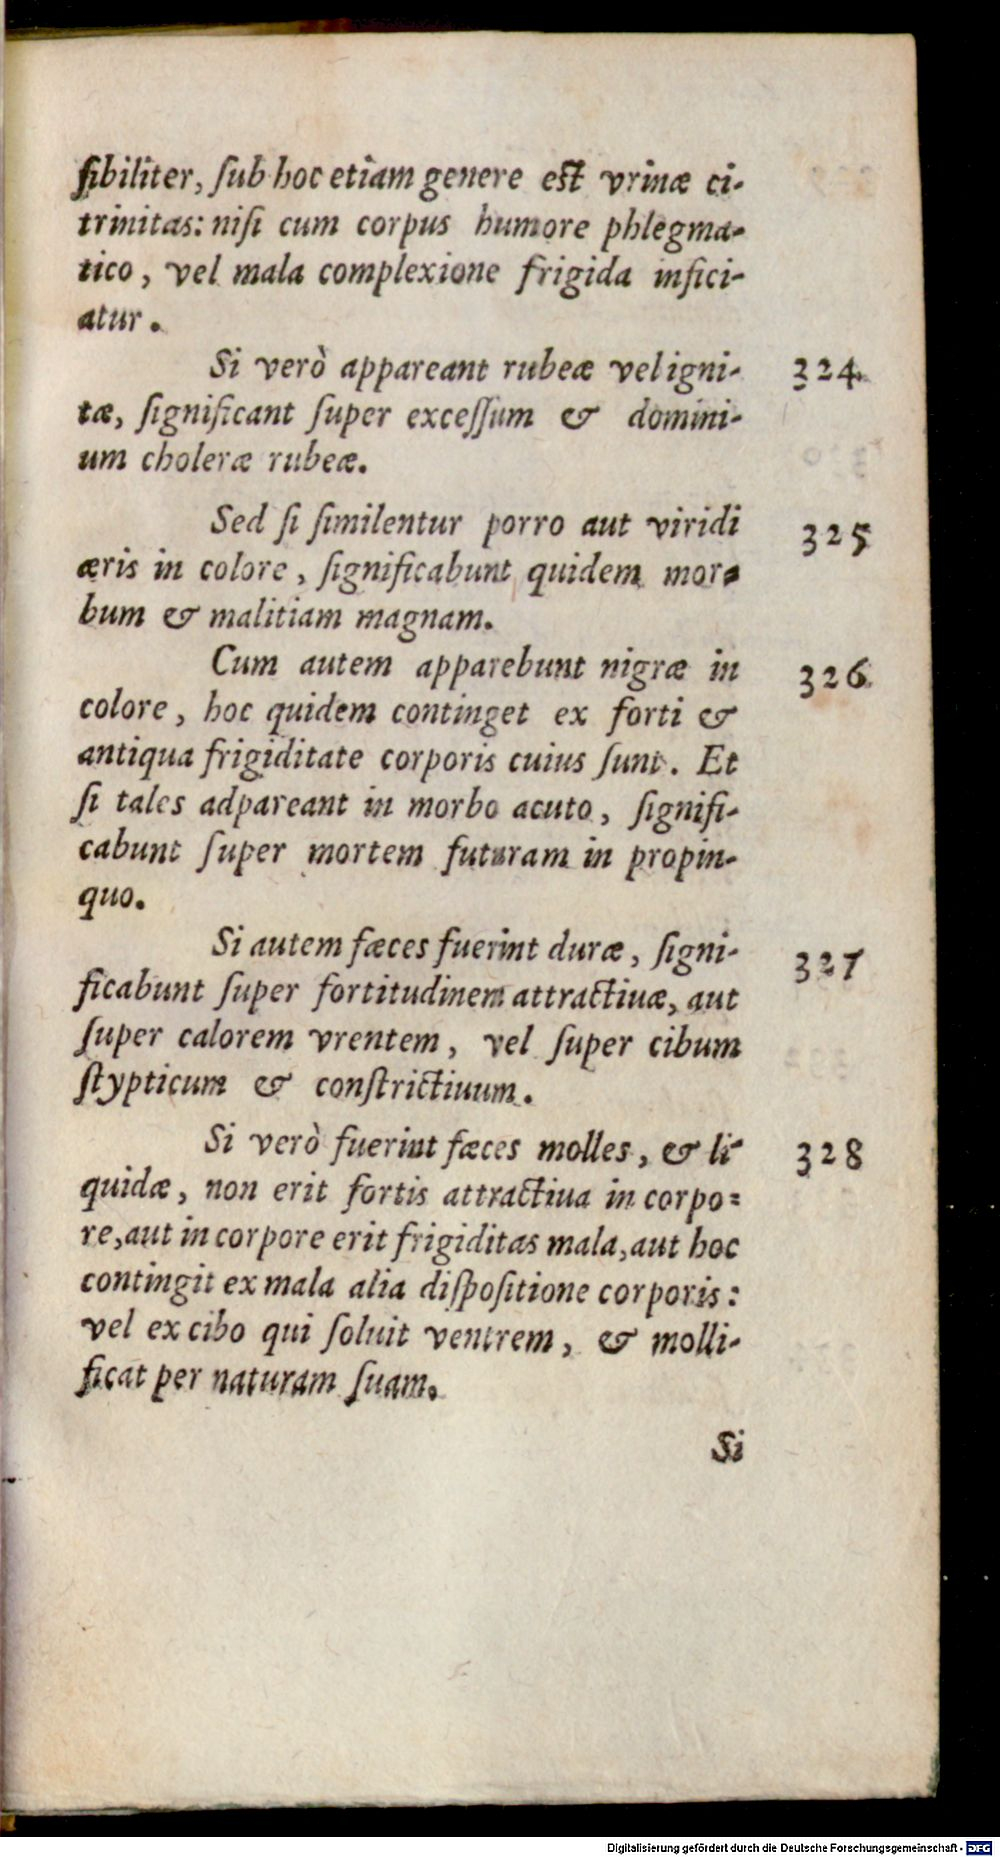 ſibiliter, ſub hoc etiam genere eſt vrinæ ci-
trinitas: niſi cum corpus humore phlegma-
tico, vel mala complexione frigida infici-
atur.
Si verò appareant rubeæ vel igni- 324
tæ, ſignificant ſuper exceſſum & domini-
um choleræ rubeæ.
Sed ſi ſimilentur porro aut viridi 325
æris in colore, ſignificabunt quidem mor-
bum & malitiam magnam.
Cum autem apparebunt nigræ in 326
colore, hoc quidem continget ex forti &
antiqua frigiditate corporis cuius ſunt. Et
ſi tales adpareant in morbo acuto, ſignifi-
cabunt ſuper mortem futuram in propin-
quo.
Si autem fæces fuerint duræ, ſigni- 327
ficabunt ſuper fortitudinem attractiuæ, aut
ſuper calorem vrentem, vel ſuper cibum
ſtypticum & conſtrictiuum.
Si verò fuerint fæces molles, & li- 328
quidæ, non erit fortis attractiua in corpo-
re, aut in corpore erit frigiditas mala, aut hoc
contingit ex mala alia diſpoſitione corporis:
vel ex cibo qui ſoluit ventrem, & molli-
ficat per naturam ſuam.
Si
Digitalisierung gefördert durch die Deutsche Forschungsgemeinschaft - DFG